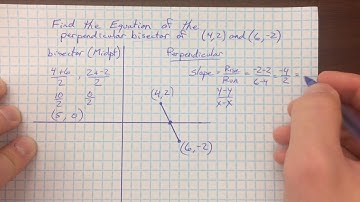 Find the Equation of the
perpendicular bisector of (4,2) and (6,-2)
bisector (Midpt)
4+6/2, 2+-2/2
10/2 0/2
(5, 0)
Perpendicular
Slope = Rise/Run = -2-2/6-4 = -4/2 =
y-y/x-x
(4,2)
(6,-2)